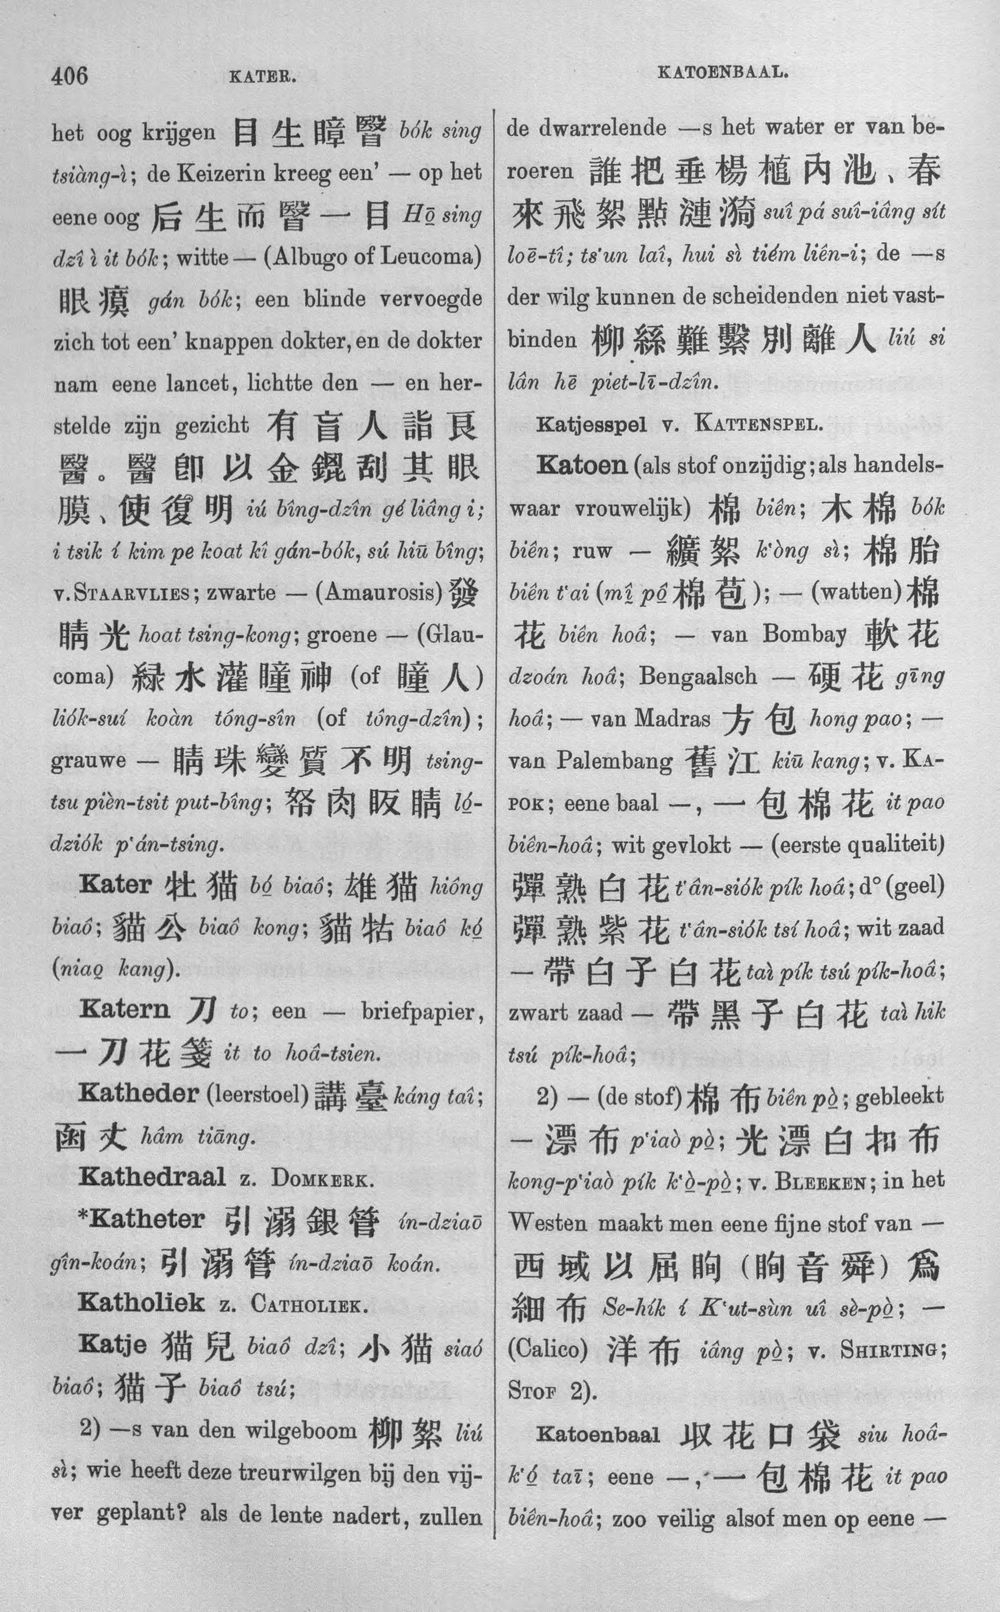 406
KATER.
KATOENBAAL.
het oog krijgen 目生瞕瞖 bók sing
tsiàng-ì; de Keizerin kreeg een' — op het
eene oog 后生而瞖一目 Hō̤ sing
dzî ì it bók; witte — (Albugo of Leucoma)
眼瘼 gán bók; een blinde vervoegde
zich tot een' knappen dokter, en de dokter
nam eene lancet, lichtte den — en her-
stelde zijn gezicht 有盲人詣良
醫。醫卽以金錕刮其眼
膜、使復明 iú bîng-dzîn gé liâng i;
i tsik í kim pe koat kî gán-bók, sú hiū bîng;
v. STAARVLIES; zwarte — (Amaurosis) 發
睛光 hoat tsing-kong; groene — (Glau-
coma) 緑水灌瞳神 (of 瞳人)
liók-suí koàn tông-sîn (of tông-dzîn);
grauwe — 睛珠變質不明 tsing-
tsu pièn-tsit put-bîng; 帑肉眅睛 ló̤-
dziók p'án-tsing.
Kater 牡猫 bó̤ biaô; 雄猫 hiông
biaô; 貓公 biaô kong; 貓牯 biaô kó̤
(niao̤ kang).
Katern 刀 to; een — briefpapier,
一刀花箋 it to hoâ-tsien.
Katheder (leerstoel) 講臺 káng taî;
函丈 hâm tiāng.
Kathedraal z. DOMKERK.
*Katheter 引溺銀管 ín-dziaō
gîn-koán; 引溺管 ín-dziaō koán.
Katholiek z. CATHOLIEK.
Katje 猫兒 biaô dzî; 小猫 siaó
biaô; 猫子 biaô tsú;
2) —s van den wilgeboom 柳絮 liú
sì; wie heeft deze treurwilgen bij den vij-
ver geplant? als de lente nadert, zullen
de dwarrelende —s het water er van be-
roeren 誰把垂楊植內池、春
來飛絮點漣漪 suî pá suî-iâng sít
loē-tî; ts'un laî, hui sì tiém liên-i; de —s
der wilg kunnen de scheidenden niet vast-
binden 柳絲難繫別離人 liú si
lân hē piet-lī-dzîn.
Katjesspel v. KATTENSPEL.
Katoen (als stof onzijdig; als handels-
waar vrouwelijk) 棉 biên; 木棉 bók
biên; ruw — 纊絮 k'òng sì; 棉胎
biên t'ai (mî̤ pô̤ 棉苞); — (watten) 棉
花 biên hoâ; — van Bombay 軟花
dzoán hoâ; Bengaalsch — 硬花 gīng
hoâ; — van Madras 方包 hong pao; —
van Palembang 舊江 kiū kang; v. KA-
POK; eene baal —, 一包棉花 it pao
biên-hoâ; wit gevlokt — (eerste qualiteit)
彈熟白花 t'ân-siók pík hoâ; d° (geel)
彈熟紫花 t'ân-siók tsí hoâ; wit zaad
— 帶白子白花 taì pík tsú pík-hoâ;
zwart zaad — 帶黑子白花 taì hik
tsú pík-hoâ;
2) — (de stof) 棉布 biên pò̤; gebleekt
— 漂布 p'iaò pò̤; 光漂白扣布
kong-p'iaò pík k'ò̤-pò̤; v. BLEEKEN; in het
Westen maakt men eene fijne stof van —
西域以屈眴 (眴音舜) 爲
細布 Se-hík í K'ut-sùn uî sè-pò̤; —
(Calico) 洋布 iâng pò̤; v. SHIRTING;
STOF 2).
Katoenbaal 収花口袋 siu hoâ-
k'ó̤ taī; eene —, 一包棉花 it pao
biên-hoâ; zoo veilig alsof men op eene —